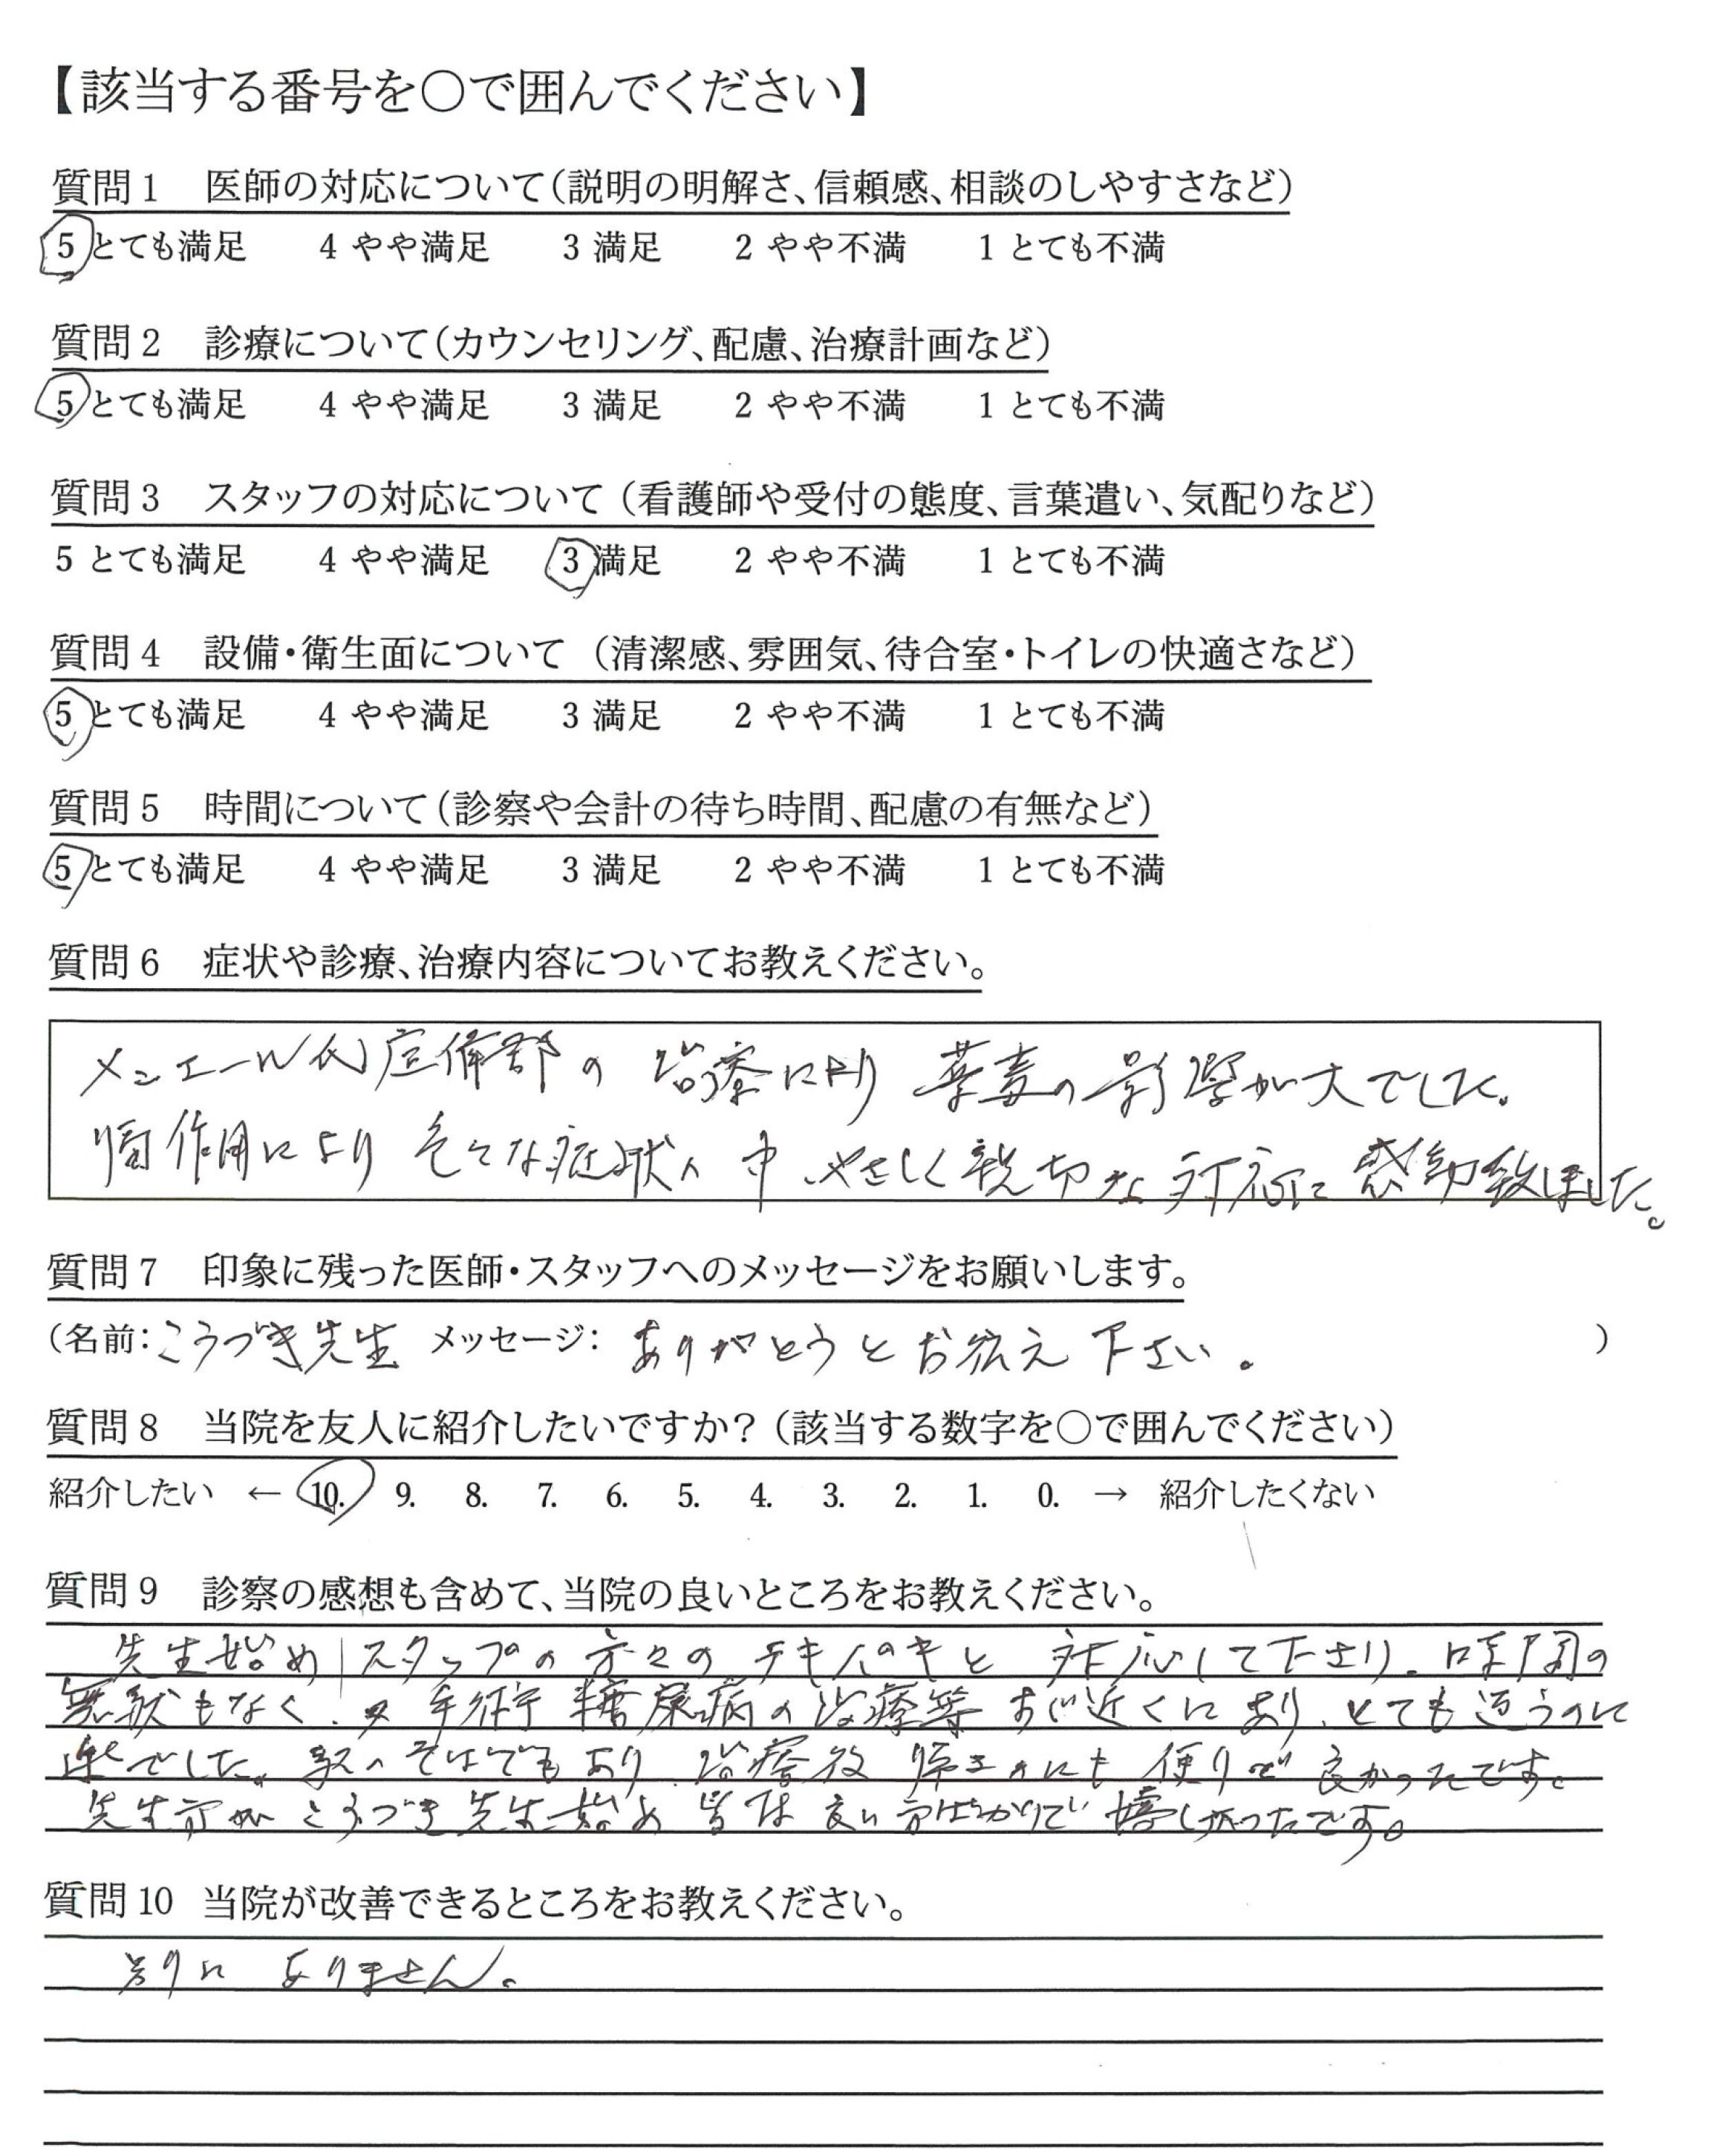 【該当する番号を〇で囲んでください】
質問1 医師の対応について(説明の明解さ、信頼感、相談のしやすさなど)
5 とても満足 4 やや満足 3 満足 2 やや不満 1 とても不満
質問2 診療について(カウンセリング、配慮、治療計画など)
5 とても満足 4 やや満足 3 満足 2 やや不満 1 とても不満
質問3 スタッフの対応について (看護師や受付の態度、言葉遣い、気配りなど)
5 とても満足 4 やや満足 3 満足 2 やや不満 1 とても不満
質問4 設備・衛生面について (清潔感、雰囲気、待合室・トイレの快適さなど)
5 とても満足 4 やや満足 3 満足 2 やや不満 1 とても不満
質問5 時間について(診察や会計の待ち時間、配慮の有無など)
5 とても満足 4 やや満足 3 満足 2 やや不満 1 とても不満
質問6 症状や診療、治療内容についてお教えください。
メニエール 治療により 薬毒の影響が大でした。
副作用により 色々な症状の中、やさしく親切な対応に感動致しました。
質問7 印象に残った医師・スタッフへのメッセージをお願いします。
(名前:こうづき先生 メッセージ: ありがとうとお伝え下さい。 )
質問8 当院を友人に紹介したいですか? (該当する数字を〇で囲んでください)
紹介したい ← 10. 9. 8. 7. 6. 5. 4. 3. 2. 1. 0. → 紹介したくない
質問9 診察の感想も含めて、当院の良いところをお教えください。
先生始め スタッフの方々のテキパキと 対応して下さり、時間の
無駄もなく、 手術 糖尿病の治療等 すぐ近くにあり、とても通うのに
楽でした。駅のそばでもあり、治療後 帰るのにも 便利で 良かったです。
先生方が こうづき先生始め 皆様 良い方ばかりで 嬉しかったです。
質問10 当院が改善できるところをお教えください。
別に ありません。